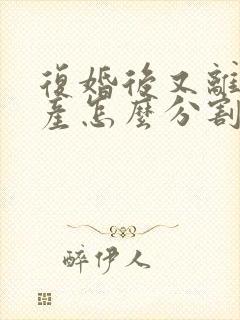 復婚後又離
產怎麼分割
醉伊人